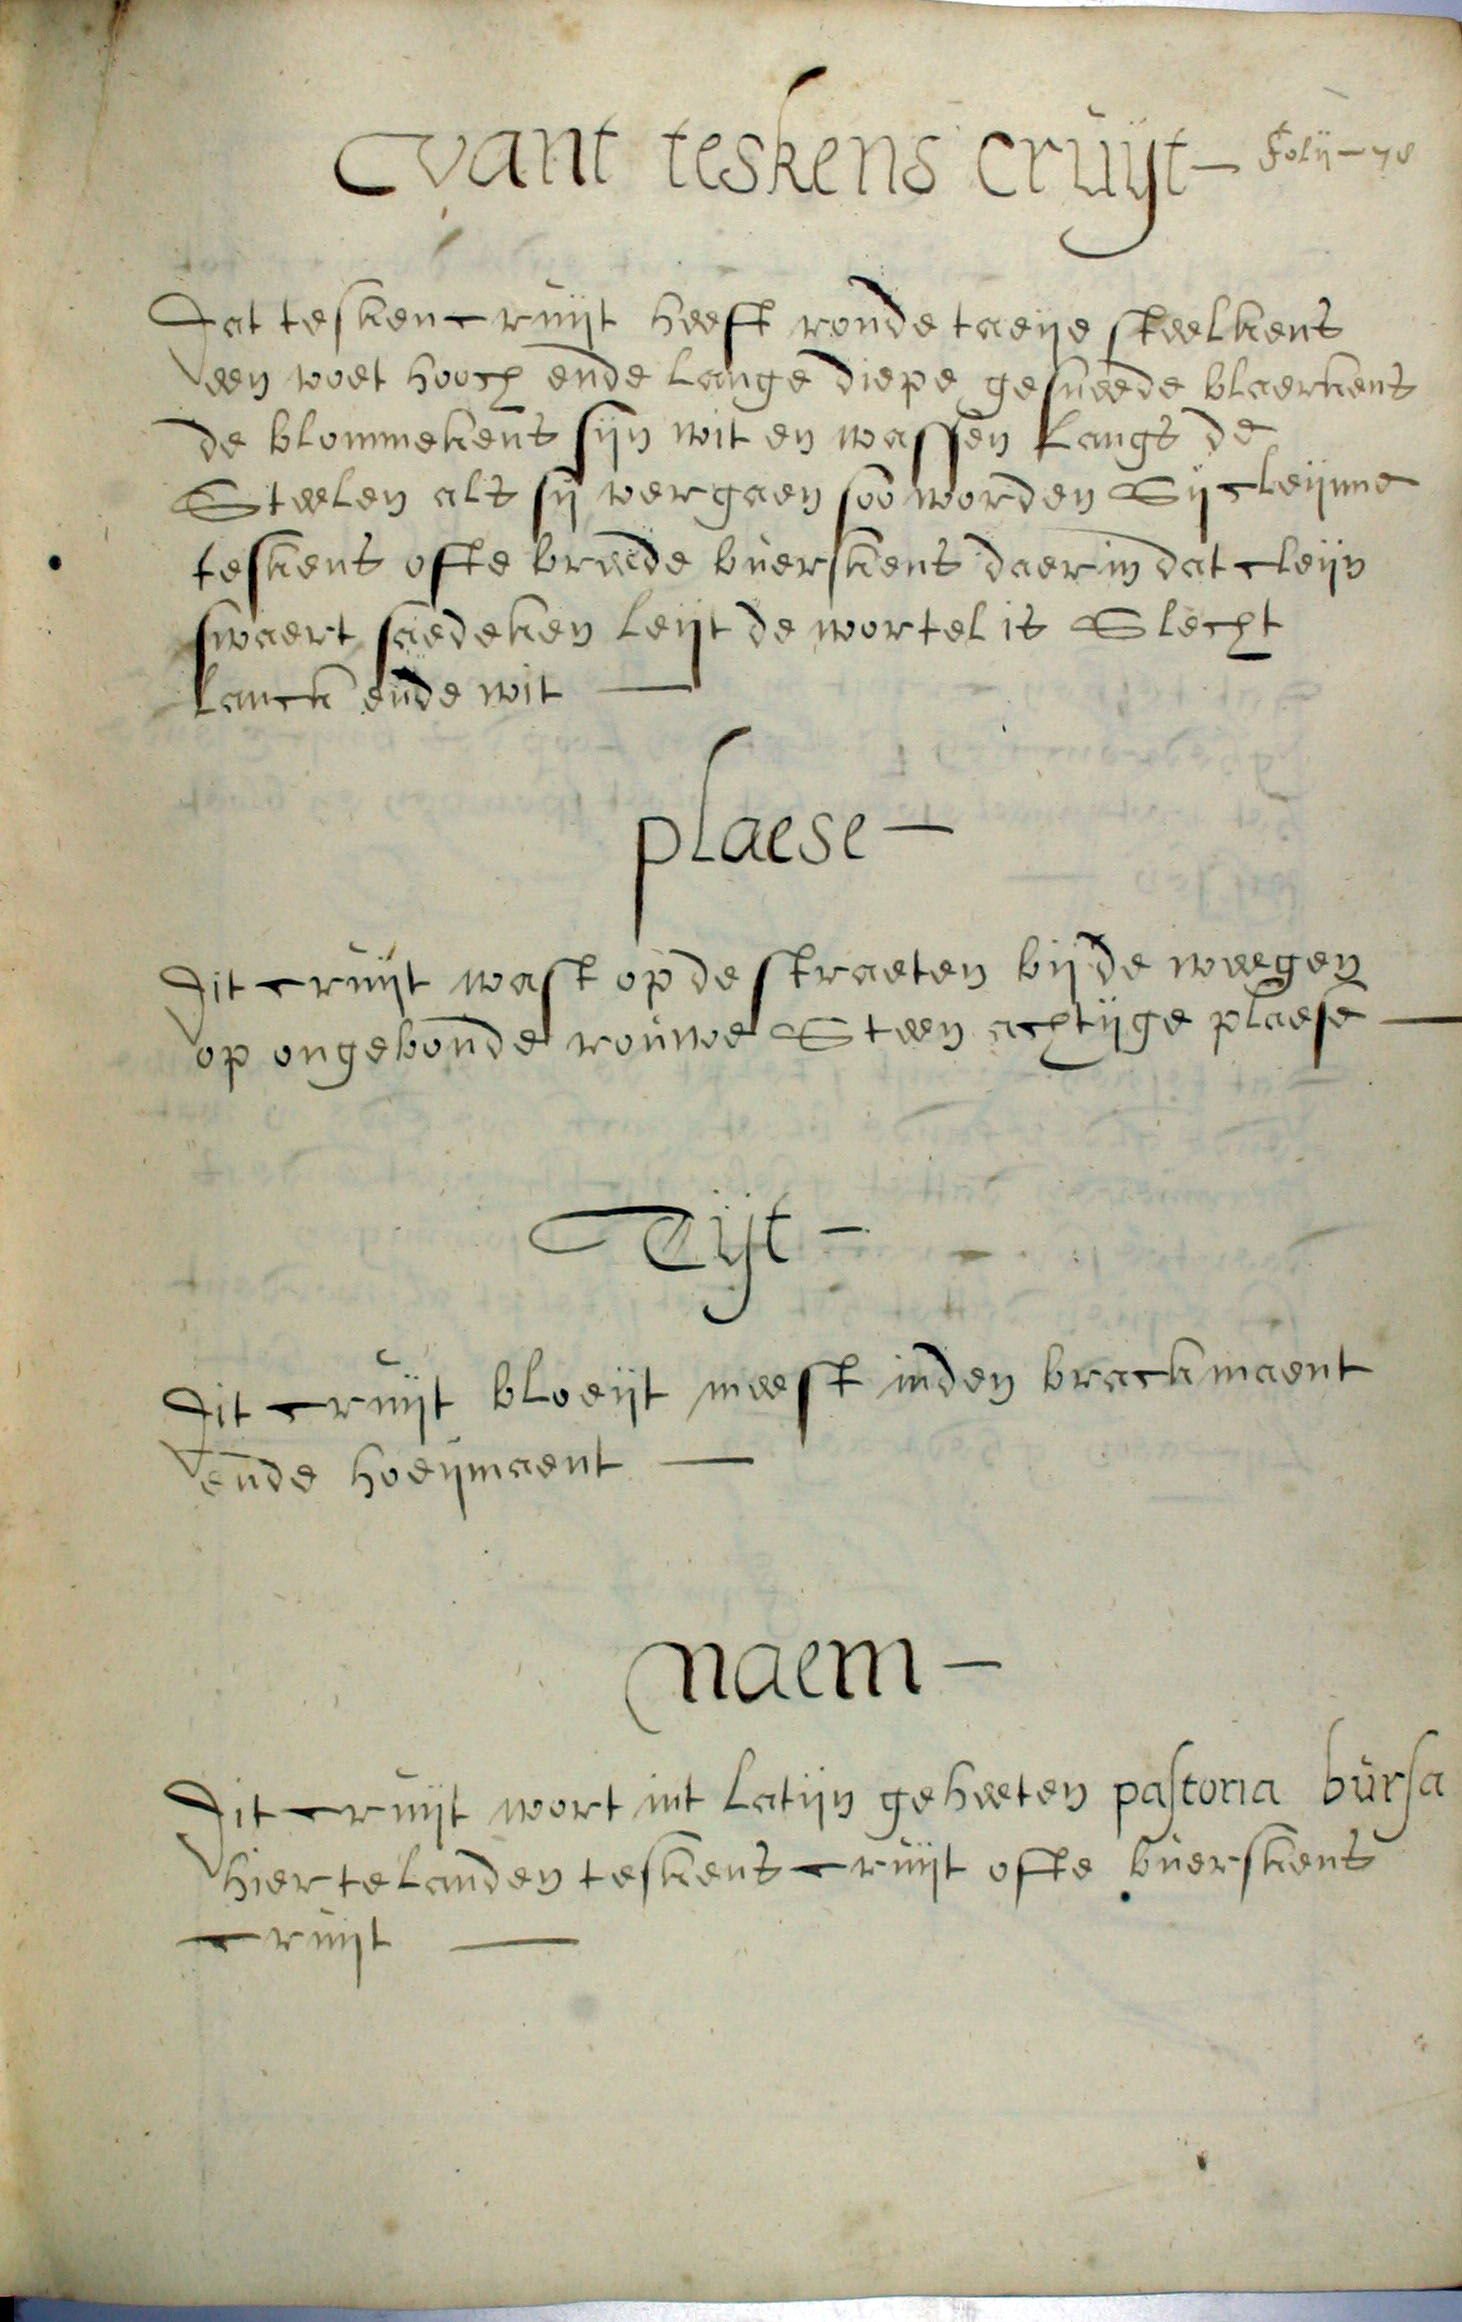 vant teskens cruijt — folij — 78
Dat teskencruijt heeft ronde taeije steelkens
een voet hooch ende lange diepe gesneede blaerkens
de blommekens sijn wit en wassen langs de
Steelen als sij vergaen soo worden Sij cleijnne
teskens ofte breede buerskens daer in dat cleijn
swaert saedeken leijt de wortel is Slecht
lanck ende wit —
plaese —
Dit cruijt wast op de straeten bij de weegen
op ongebonde rouwe Steen achtijge plaese —
Tijt —
Dit cruijt bloeijt meest inden brackmaent
ende hoeijmaent —
naem —
Dit cruijt wort int latijn geheeten pastoria bursa
hier te landen teskens cruijt ofte buerskens
cruijt —